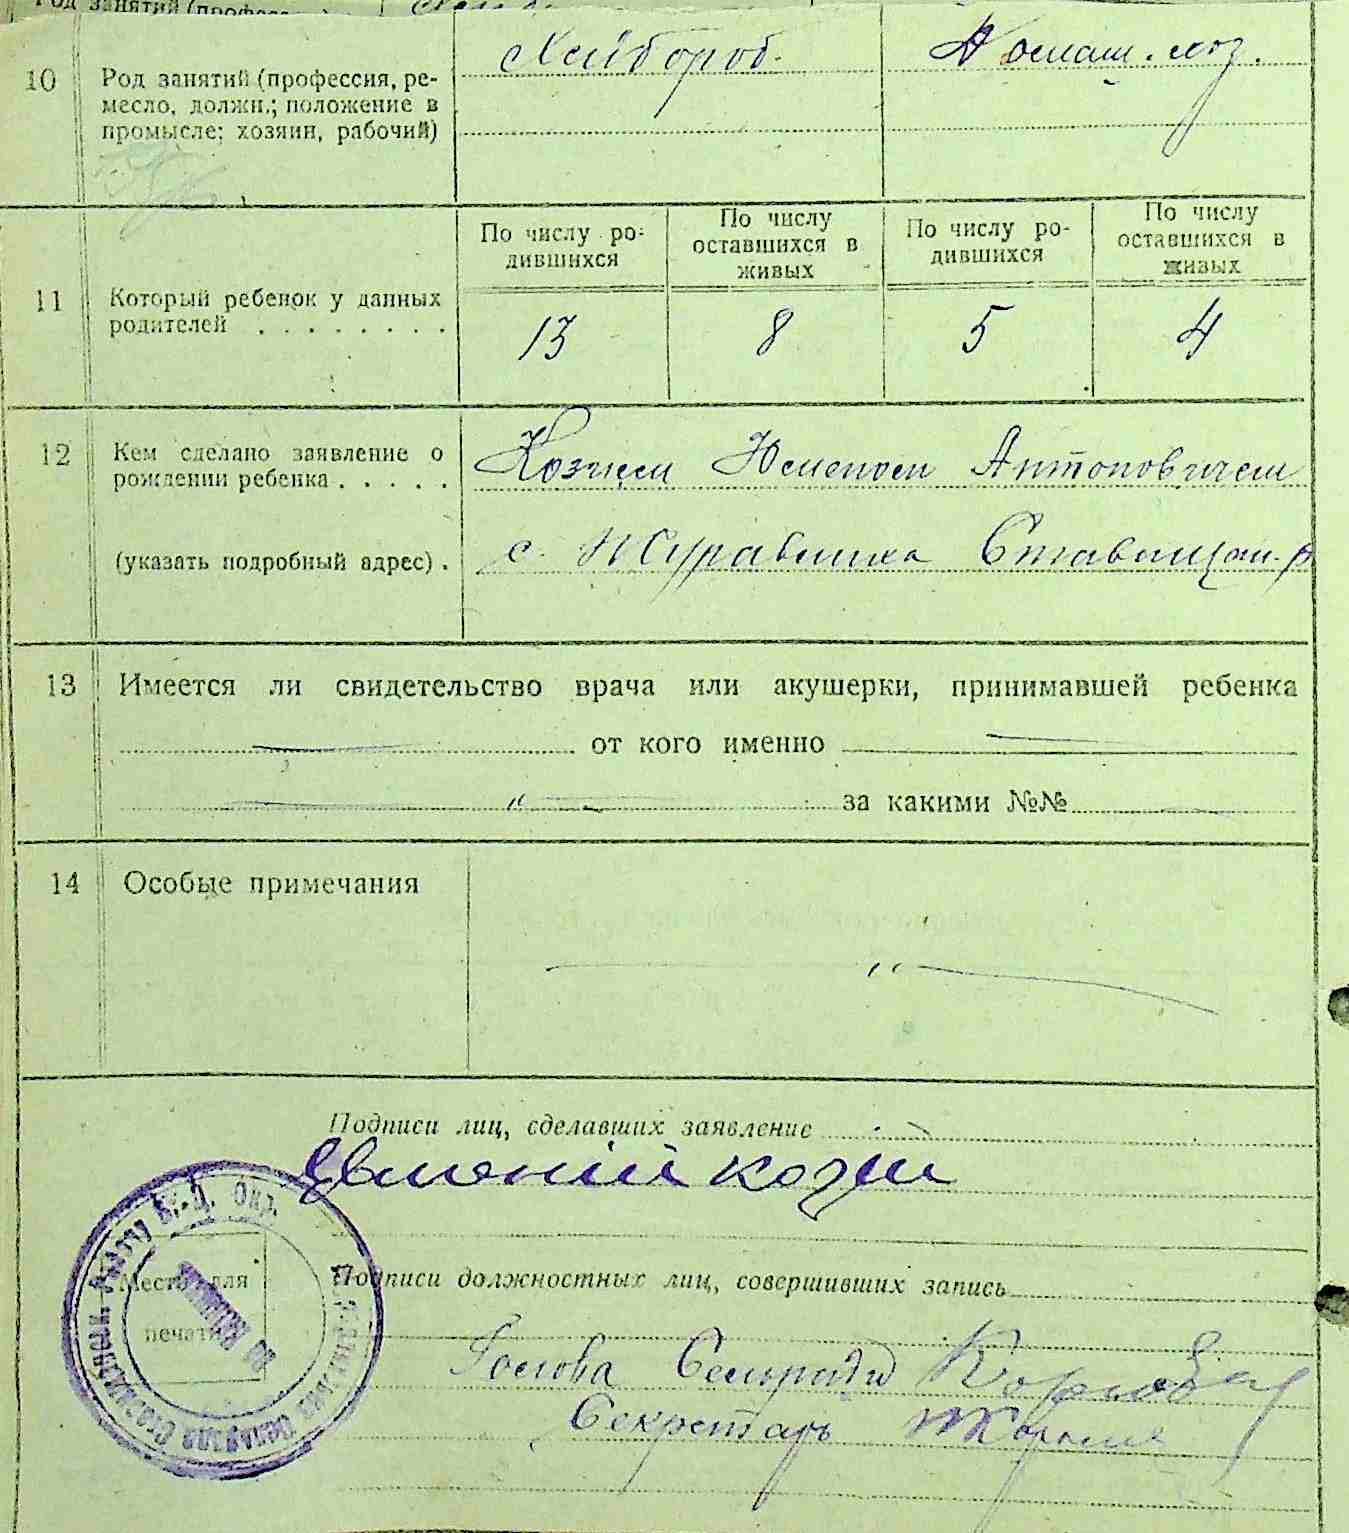 Род занятий (професс
10 Род занятий (профессия, ре-
месло, должн.; положение в
промысле; хозяин, рабочий)
Хлибороб. Домаш. хоз.
11 Который ребенок у данных
родителей . . . . . . . .
По числу ро-
дившихся
По числу
оставшихся в
живых
По числу ро-
дившихся
По числу
оставшихся в
живых
13 8 5 4
12 Кем сделано заявление о
рождении ребенка . . . . .
(указать подробный адрес) .
Козием Антоновичем
с. Журавлиха Ставищан. р
13 Имеется ли свидетельство врача или акушерки, принимавшей ребенка
— от кого именно —
— " — за какими №№ —
14 Особые примечания
— " —
Подписи лиц, сделавших заявление
козій
Место для
печати
Подписи должностных лиц, совершивших запись
Голова Сельради
Секретарь